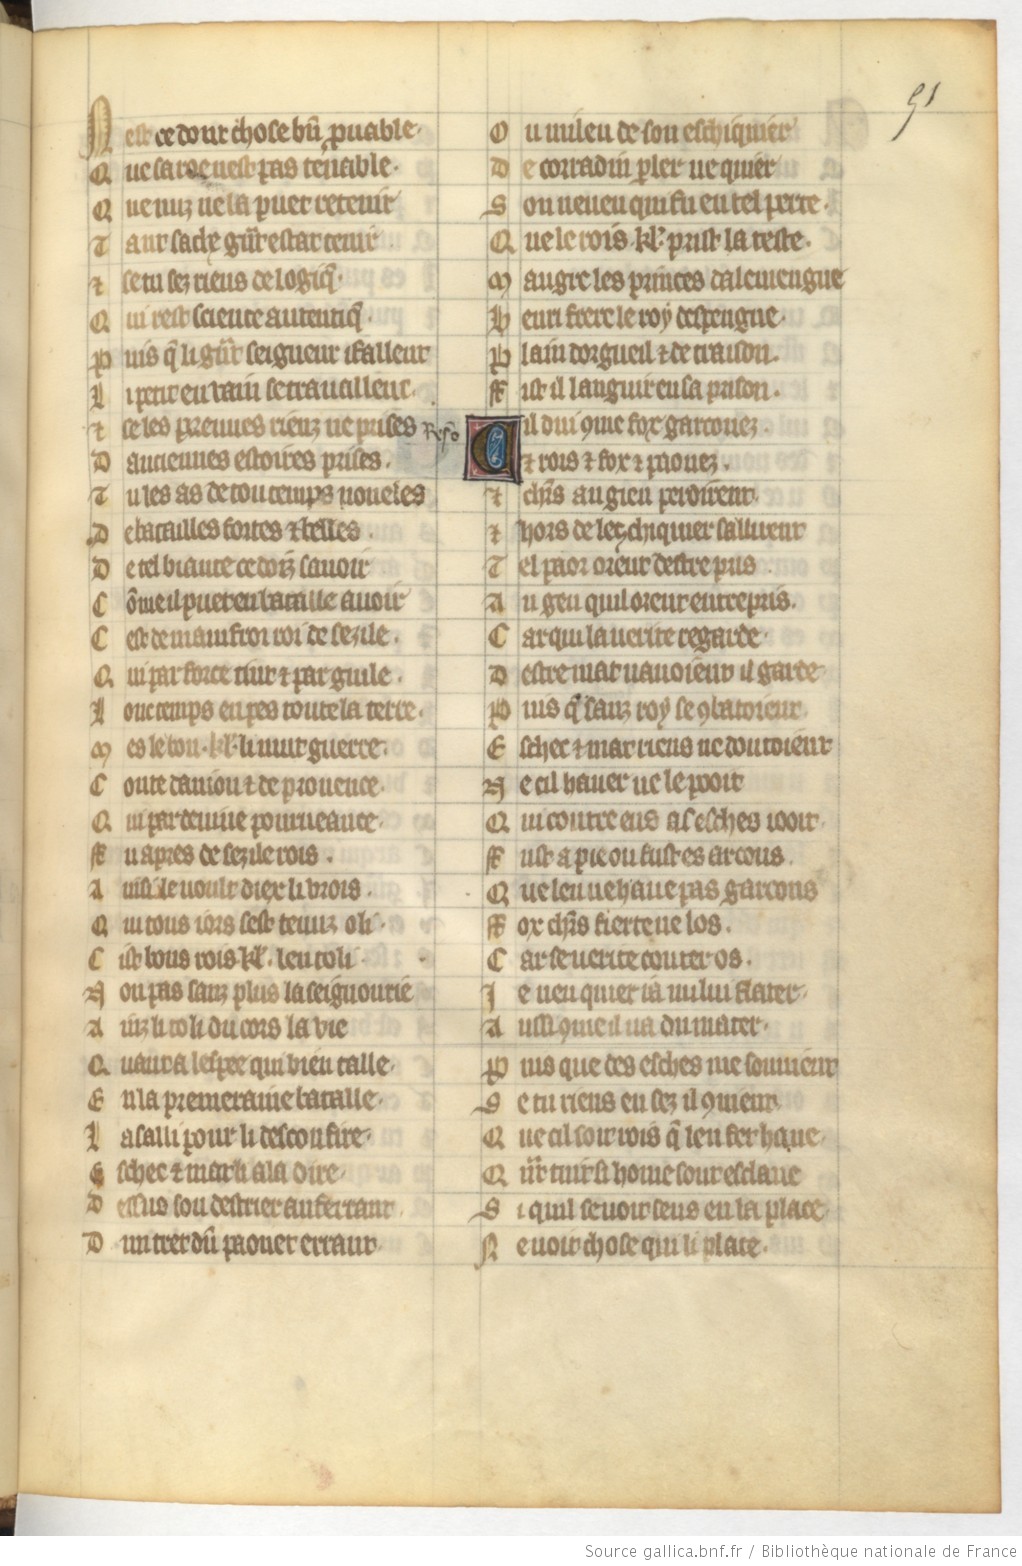 51
N est ce dont chose bn̄ prouable.
Q ue sa roe nest pas tenable.
Q ue nuz ne la puet retenir
T ant sache grāt estat tenir
⁊ se tu sez riens de logiq̄.
Q ui rest science autentiq̄.
P uis q̄ li grāt seigneur i faillent
L i petit en vain se trauaillent.
⁊ se les preuues riens ne prises
D anciennes estoires prises.
T u les as de ton temps noueles
D e batailles fortes ⁊ belles.
D e tel biaute ce doiz sauoir
C ōme il puet en bataille auoir
C est de mainfroi roi de sezile.
Q ui par force tint ⁊ par guile.
L onc temps en pes toute la terre.
M es le bon .kl'. li mut guerre.
C onte daniou ⁊ de prouence.
Q ui par deuine pourueance.
ff u apres de sezile rois.
A insi le voult diex li vrois.
Q ui tous iors sest tenuz o li.
C ist bons rois kl'. len toli.
N on pas sanz plus la seignourie
A inz li toli du cors la vie
Q uant a lespee qui bien taille.
E n la premeraine bataille.
L assalli pour li desconfire.
E schec ⁊ mat li ala dire.
D essus son destrier auferrant.
D un tret dū paonet errant.
O u milieu de son eschiquier
D e corradin pler ne quier
S on neueu qui fu en tel perte.
Q ue le rois .kl'. prist la teste.
M augre les princes dalemengne
H enri frere le roy despengne.
P lain dorgueil ⁊ de traison.
ff ist il languir en sa prison.
Reso
C il dui 9me fox garconez.
⁊ rois ⁊ fox ⁊ paonez.
⁊ chr̄s au gieu perdirent.
⁊ hors de leschiquier saillirent
T el paor orent destre pris
A u geu quil orent entrepris.
C ar qui la uerite regarde.
D estre mat nauoient il garde
P uis q̄ sanz roy se 9batoient.
E schec ⁊ mat riens ne doutoient
N e cil hauer ne le pooit
Q ui contre eus as esches iooit.
ff ust a pie ou fust es arcons.
Q ue len ne haue pas garcons
ff ox chr̄s fierte ne los.
C ar se uerite conter os.
I e nen quier ia nului flater.
A ussi 9me il ua du mater.
P uis que des esches me souuient
S e tu riens en sez il 9uient.
Q ue cil soit rois q̄ len fet haue.
Q n̄t tuit si home sont esclaue
S i quil se uoit seus en la place.
N e uoit chose qui li place.
Source gallica.bnf.fr / Bibliothèque nationale de France